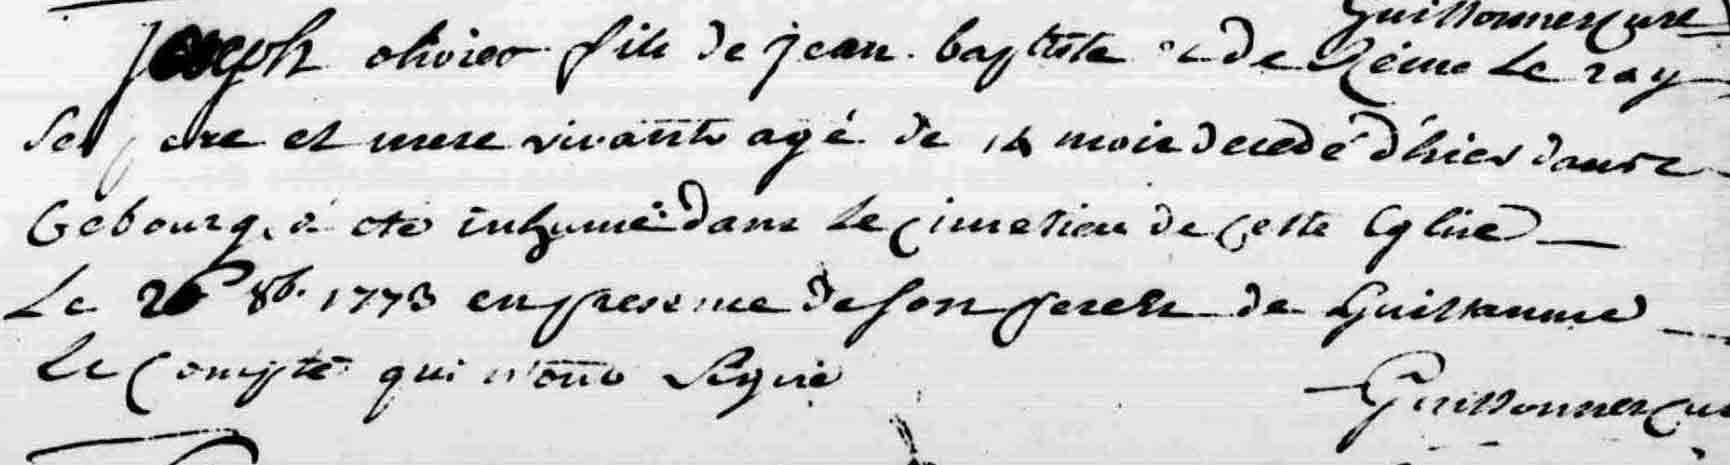 Guissonnier Curé
Joseph olivier fils de jean baptiste et de Réine Le ray
Ses pere et mere vivants agé de 14 mois decedé d'hier dans
ce bourg, a été inhumé dans le cimetiere de cette Eglise
Le 26 8b. 1773 en presence de son pere et de Guillaume
Le Compte qui n'ont Signé